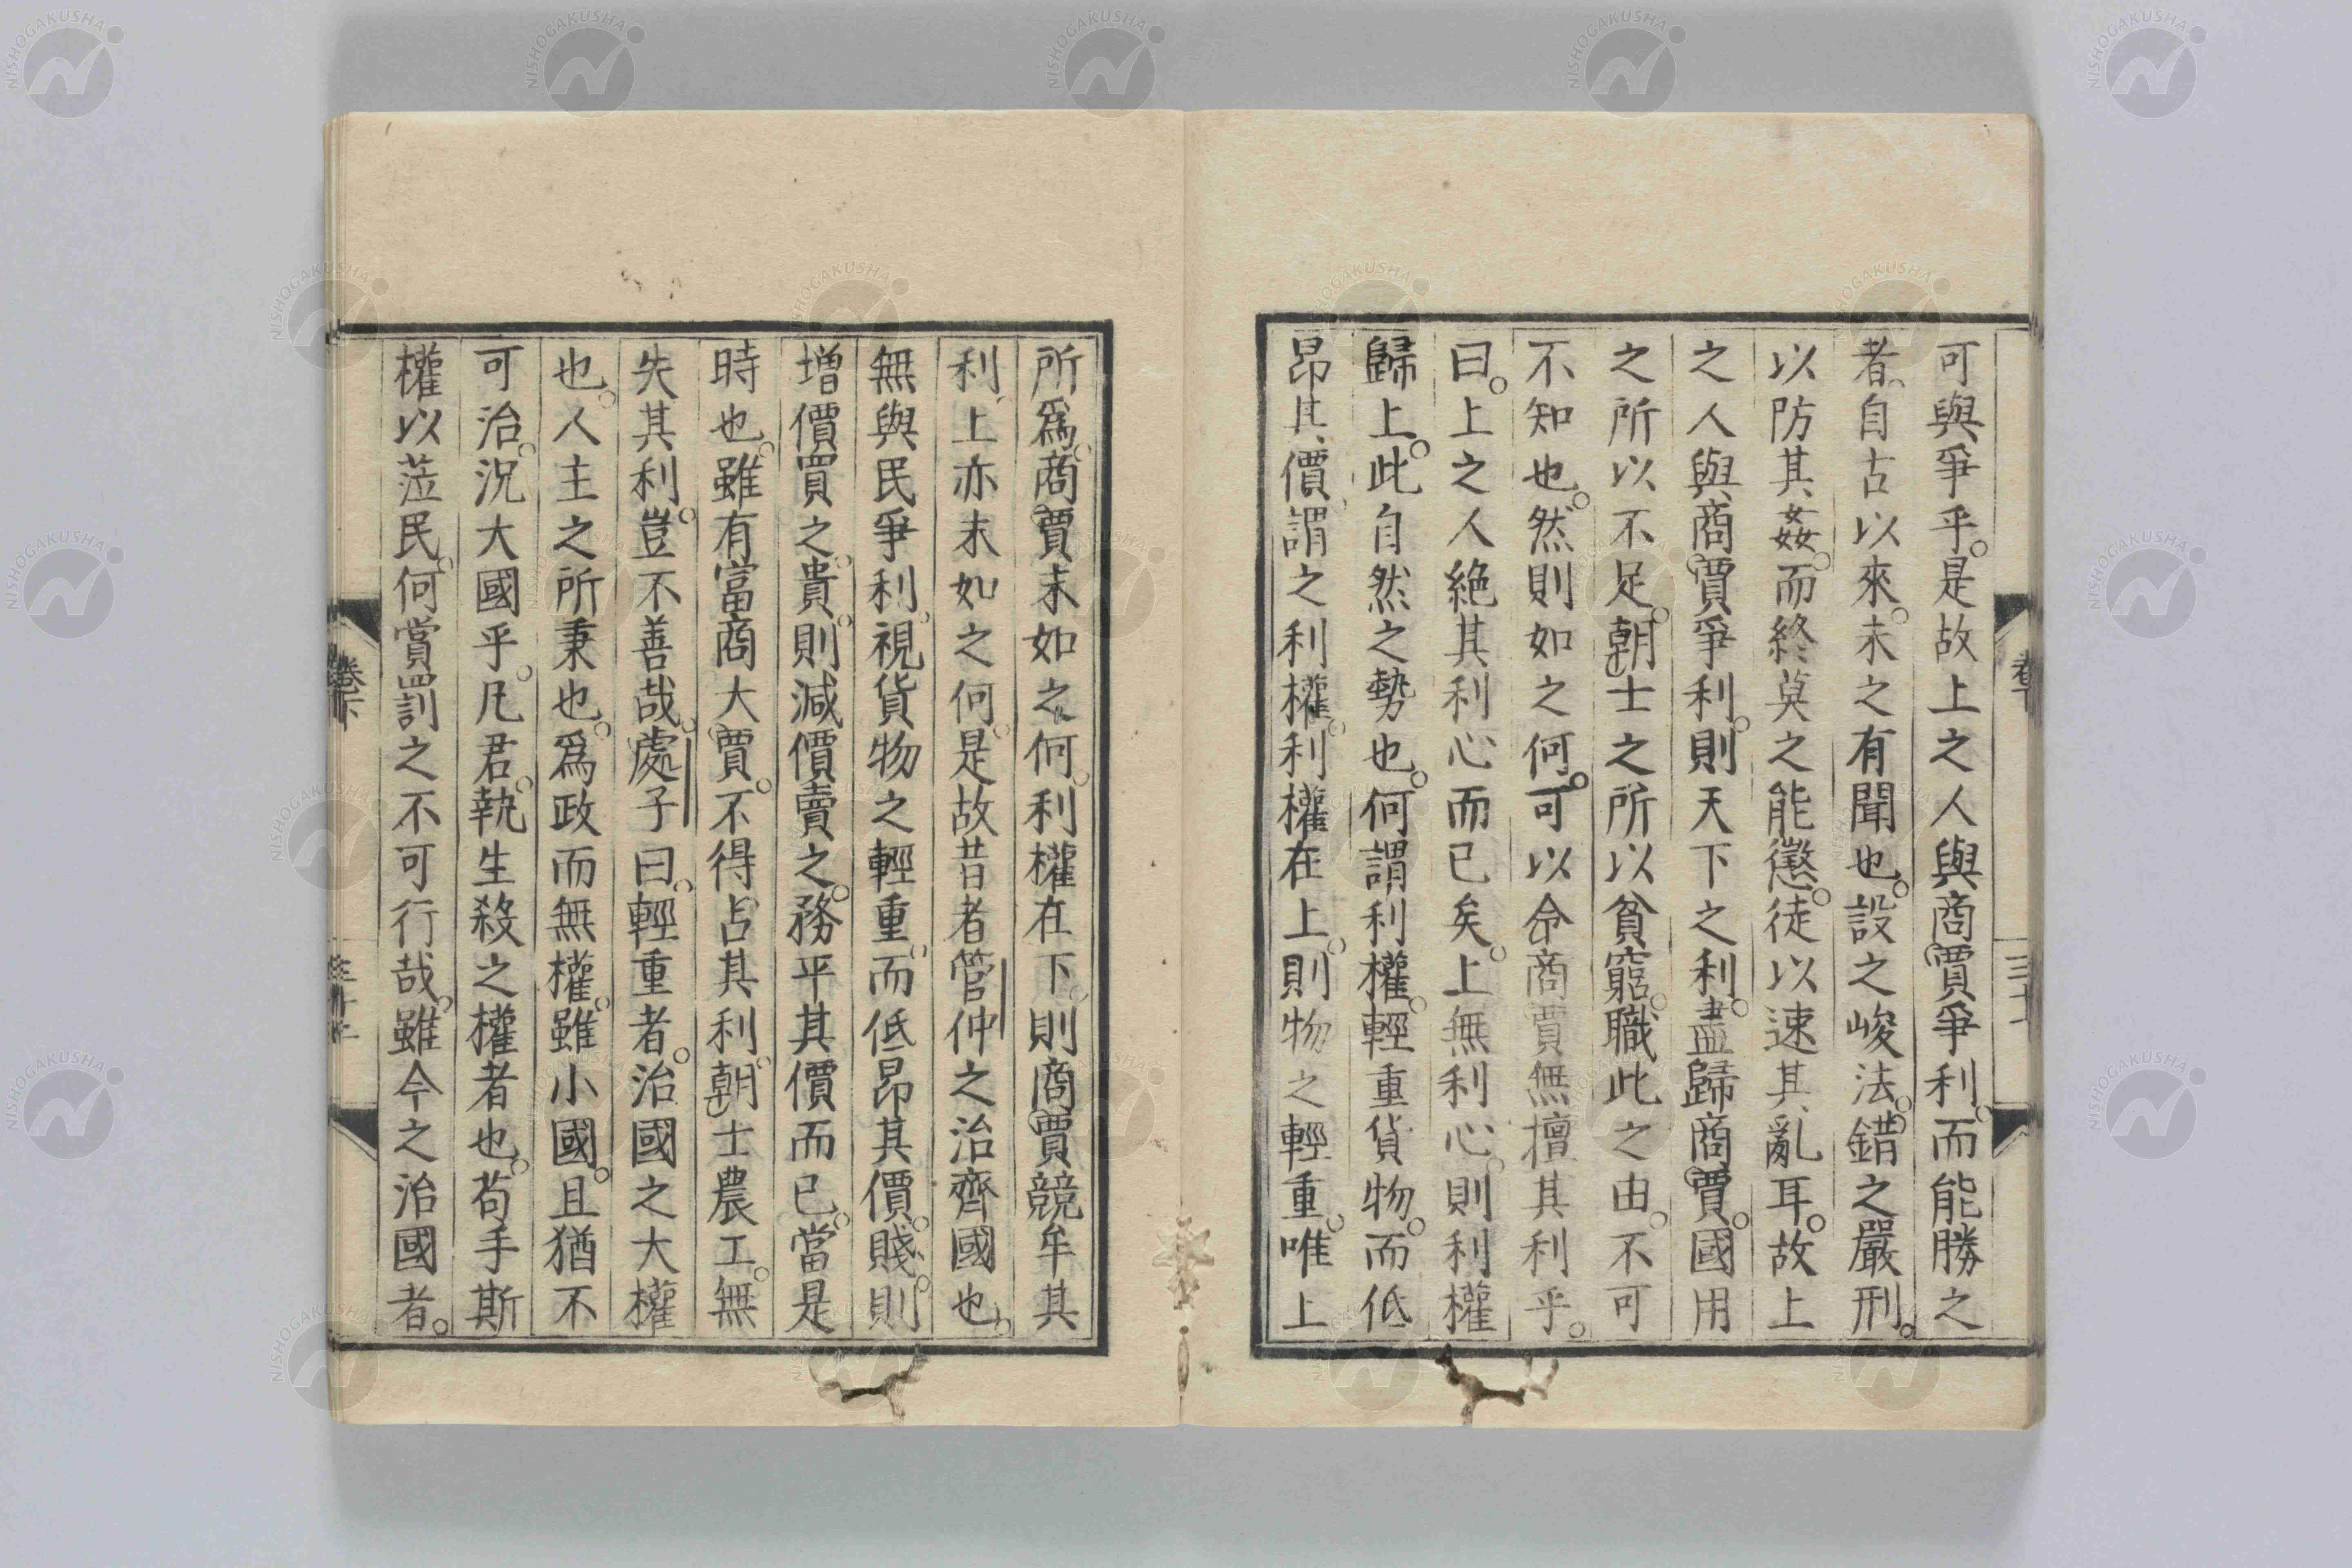 可與爭乎。是故上之人與商賈爭利。而能勝之
者。自古以來。未之有聞也。設之峻法。錯之嚴刑。
以防其姦。而終莫之能懲。徒以速其亂耳。故上
之人與商賈爭利。則天下之利。盡歸商賈。國用
之所以不足。朝士之所以貧窮。職此之由。不可
不知也。然則如之何。可以令商賈無擅其利乎。
曰。上之人絶其利心而已矣。上無利心。則利權
歸上。此自然之勢也。何謂利權。輕重貨物。而低
昂其價。謂之利權。利權在上。則物之輕重。唯上
所爲。商賈末如之何。利權在下。則商賈競牟其
利。上亦末如之何。是故昔者管仲之治齊國也。
無與民爭利。視貨物之輕重。而低昂其價。賤。則
增價買之。貴。則減價賣之。務平其價而已。當是
時也。雖有富商大賈。不得占其利。朝士農工。無
失其利。豈不善哉。處子曰。輕重者。治國之大權
也。人主之所秉也。爲政而無權。雖小國。且猶不
可治。況大國乎。凡君。執生殺之權者也。苟手斯
權以蒞民。何賞罰之不可行哉。雖今之治國者。
卷下
NISHOGAKUSHA